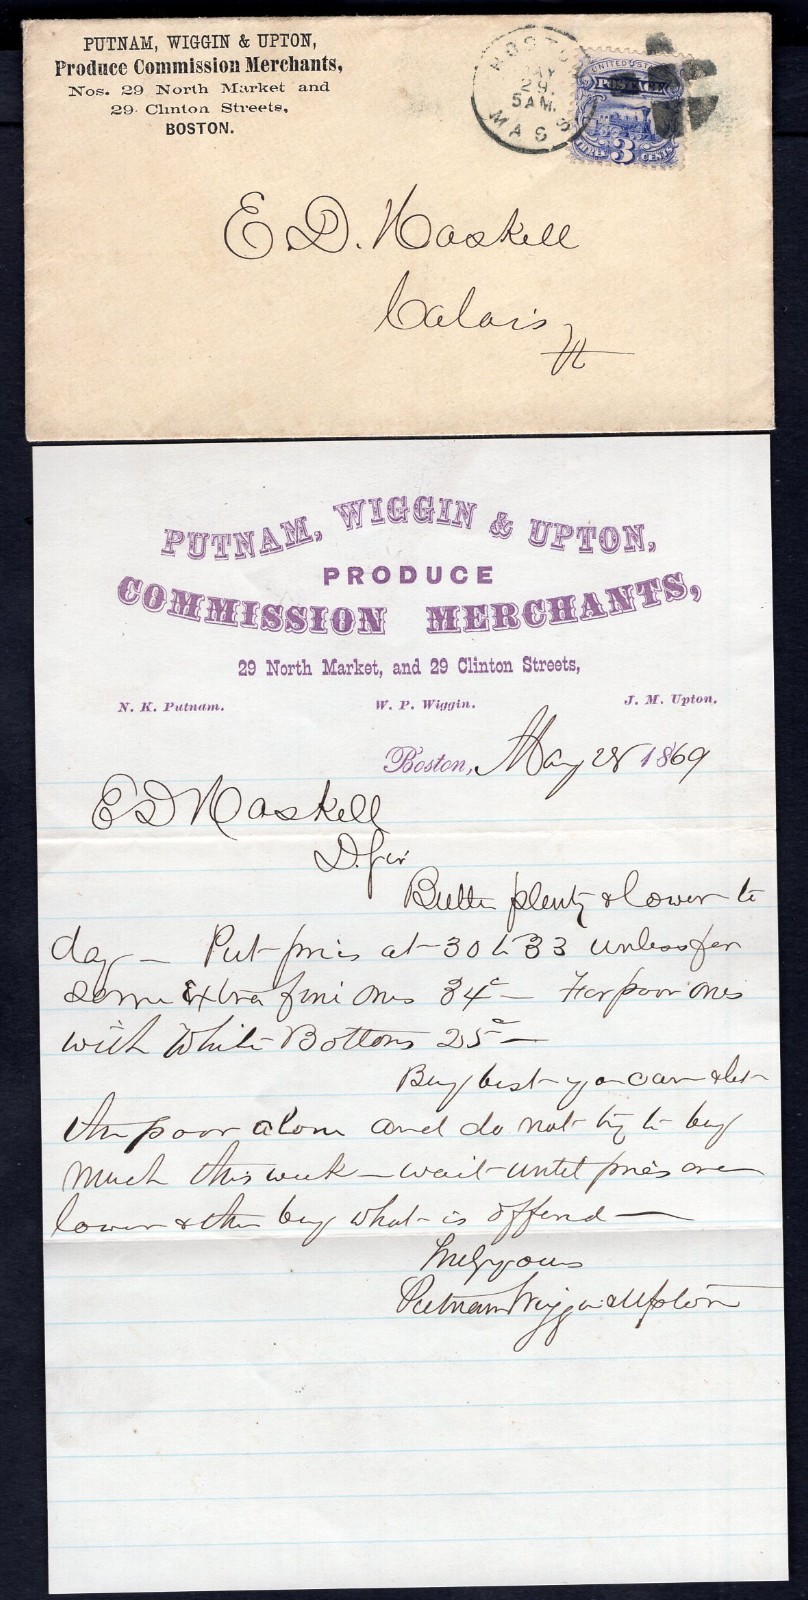 PUTNAM, WIGGIN & UPTON,
Produce Commission Merchants,
Nos. 29 North Market and
29 Clinton Streets,
BOSTON.
BOSTON
MAY
29.
5 AM.
MASS
UNITED STATES
POSTAGE
THREE 3 CENTS
E D. Haskell
Calais
Vt
PUTNAM, WIGGIN & UPTON,
PRODUCE
COMMISSION MERCHANTS,
29 North Market, and 29 Clinton Streets,
N. K. Putnam. W. P. Wiggin. J. M. Upton.
Boston, May 28 1869
E D Haskell
D. Sir
Butter plenty & lower to
day — Put prices at 30 to 33 unless for
some extra fine ones 34c — For poor ones
with White Bottoms 25c —
Buy best you can & let
the poor alone and do not try to buy
much this week — wait until prices are
lower & then buy what is offered —
Truly yours
Putnam Wiggin & Upton